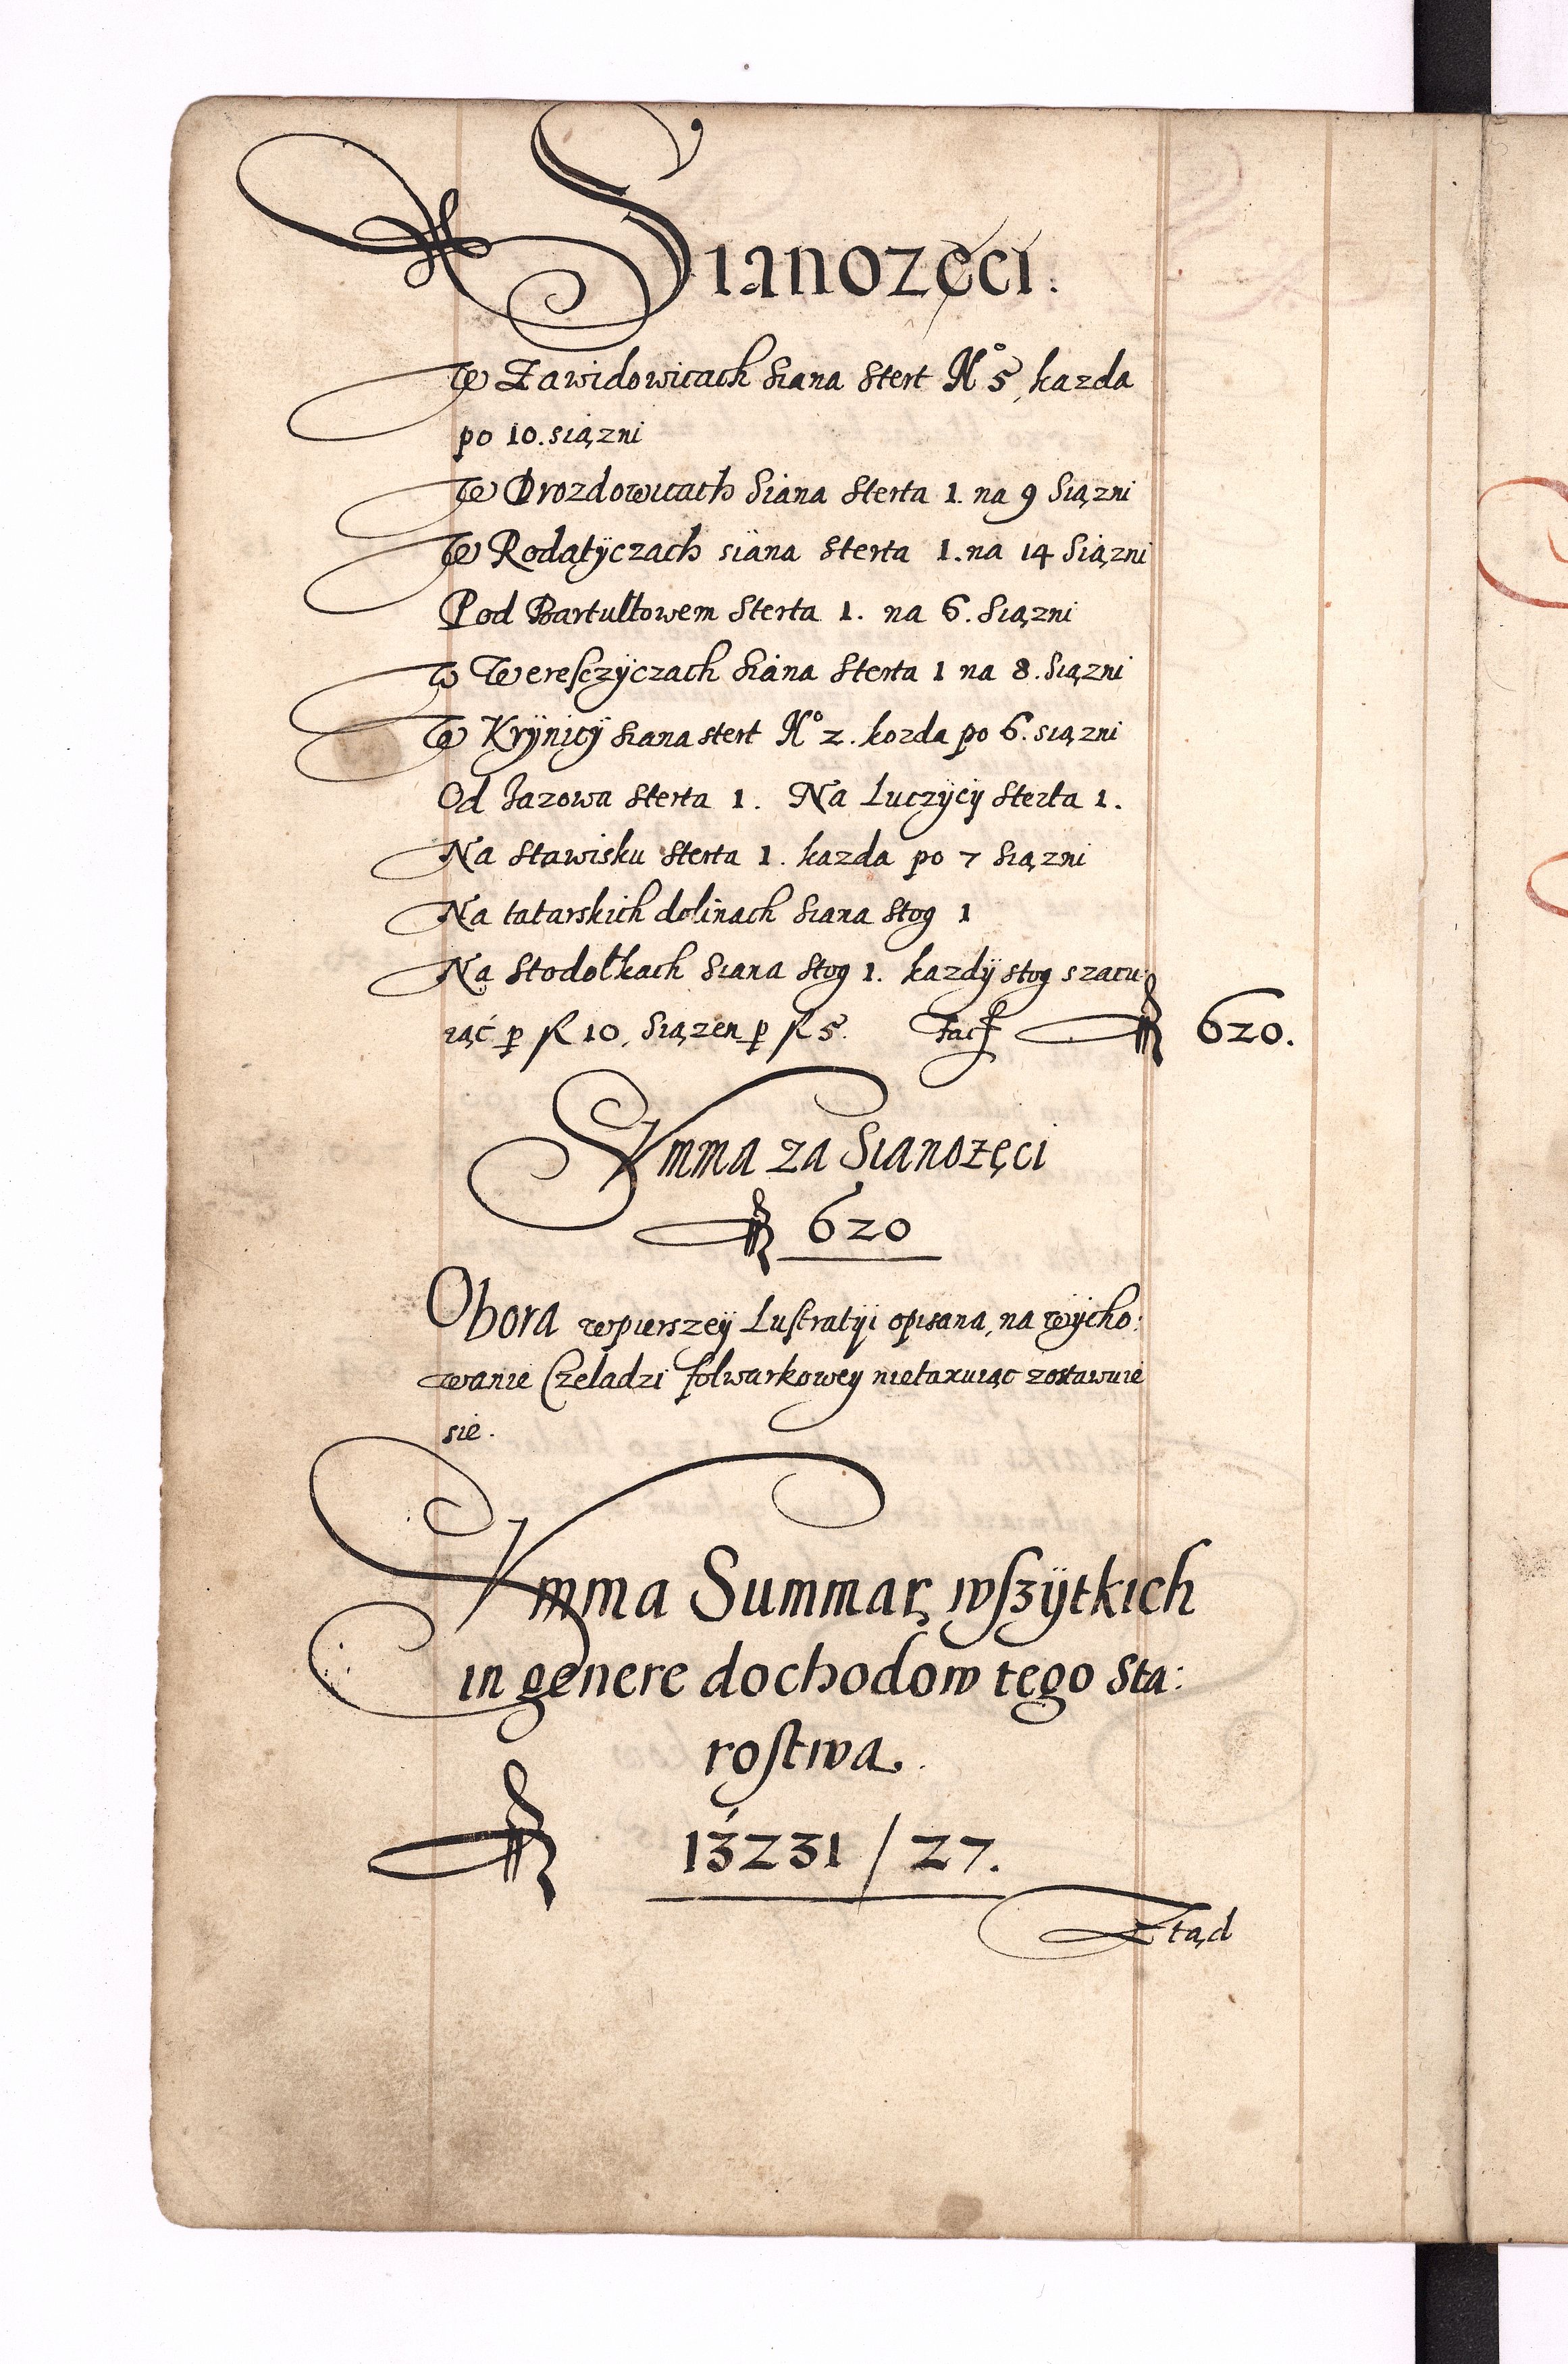 Sianozęci.
W Zawidowicach Siana Stert No 5, kazda
po 10. siązni
W Drozdowicach Siana Sterta 1. na 9 Siązni
W Rodatÿczach siana Sterta 1. na 14 Siązni
Pod Bartultowem Sterta 1. na 6. Siązni
W Wereſczÿczach Siana Sterta 1 na 8. Siązni
W Krÿnicÿ Siana stert No 2. kozda po 6. siązni
Od Jazowa Sterta 1. Na Luczÿcÿ Sterta 1.
Na Stawisku Sterta 1. kazda po 7 Siązni
Na tatarskich dolinach Siana Stog 1
Na Stodołkach Siana Stog 1. kazdÿ stog szacu:
iąć p fl 10, Siązen p fl 5. Facit fl 620.
Summa za Sianozęci
fl 620
Obora w pierszeÿ Luſtratÿi opisana, na wÿcho:
wanie Czeladzi folwarkowey nietaxuiąc zostawuie
sie.
Summa Summar, wſzÿtkich
in genere dochodow tego Sta:
roſtwa.
fl 13231 / 27.
Ztąd